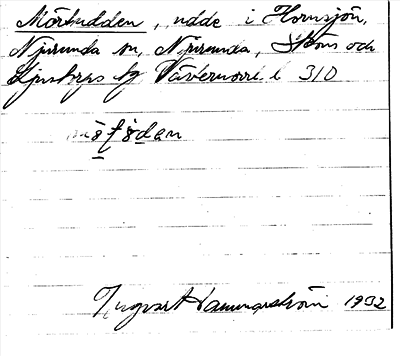 Mörtudden, udde i Hornsjön,
Njurunda sn, Njurunda, Sköns och
Ljustorps tg Västernorrl. l 310
Ingvar Hammarström 1932